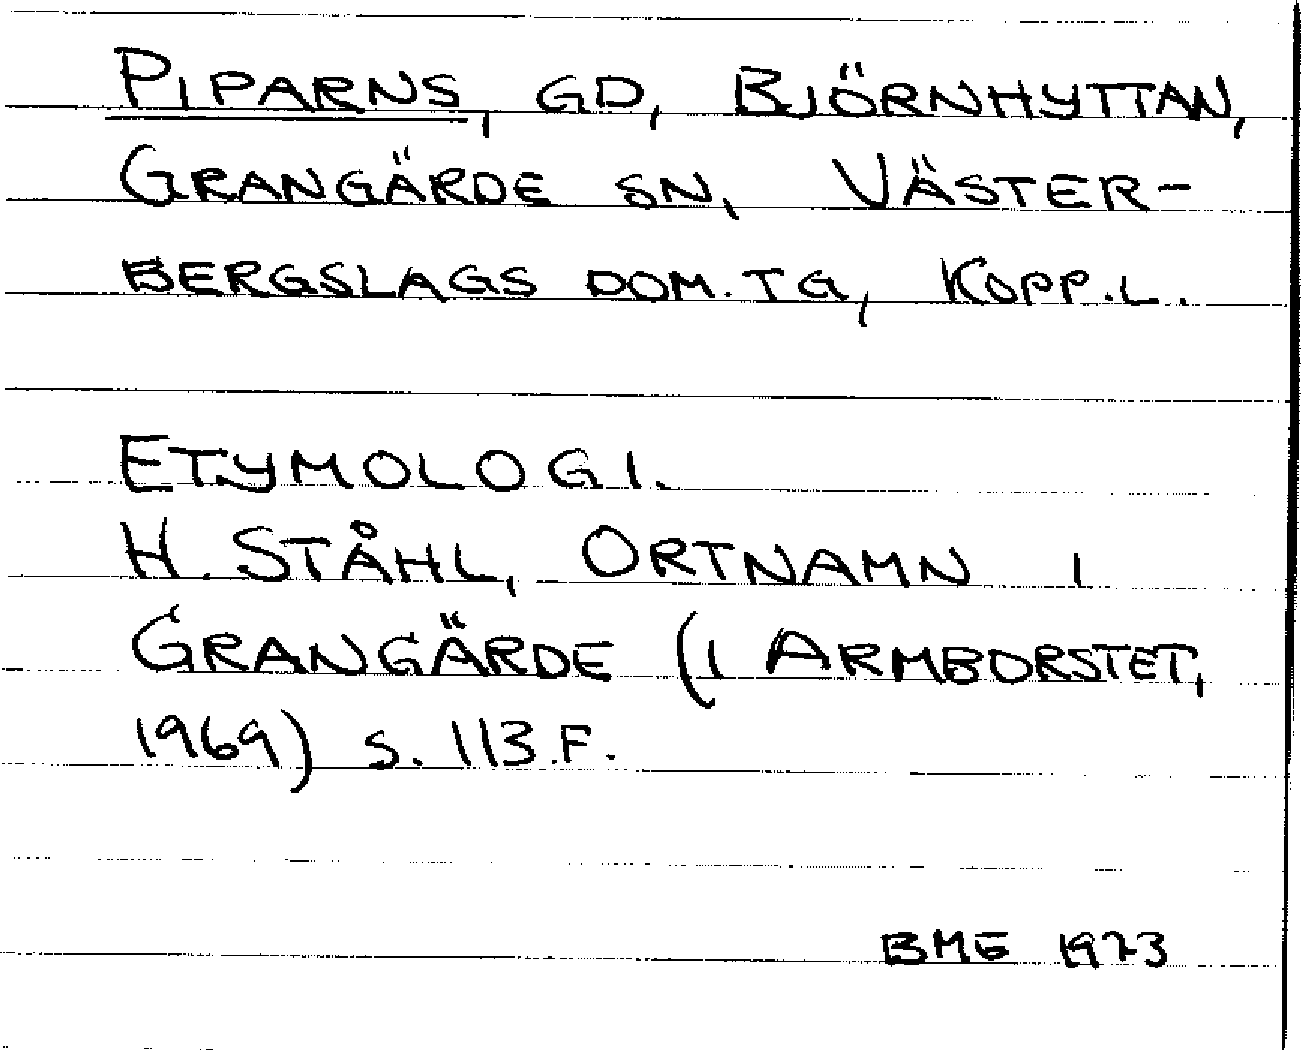 PIPARNS, GD, BJÖRNHYTTAN,
GRANGÄRDE SN, VÄSTER-
BERGSLAGS DOM. TG, KOPP.L.
ETYMOLOGI.
H. STÅHL, ORTNAMN I
GRANGÄRDE (I ARMBORSTET,
1969) S. 113.F.
BME 1973